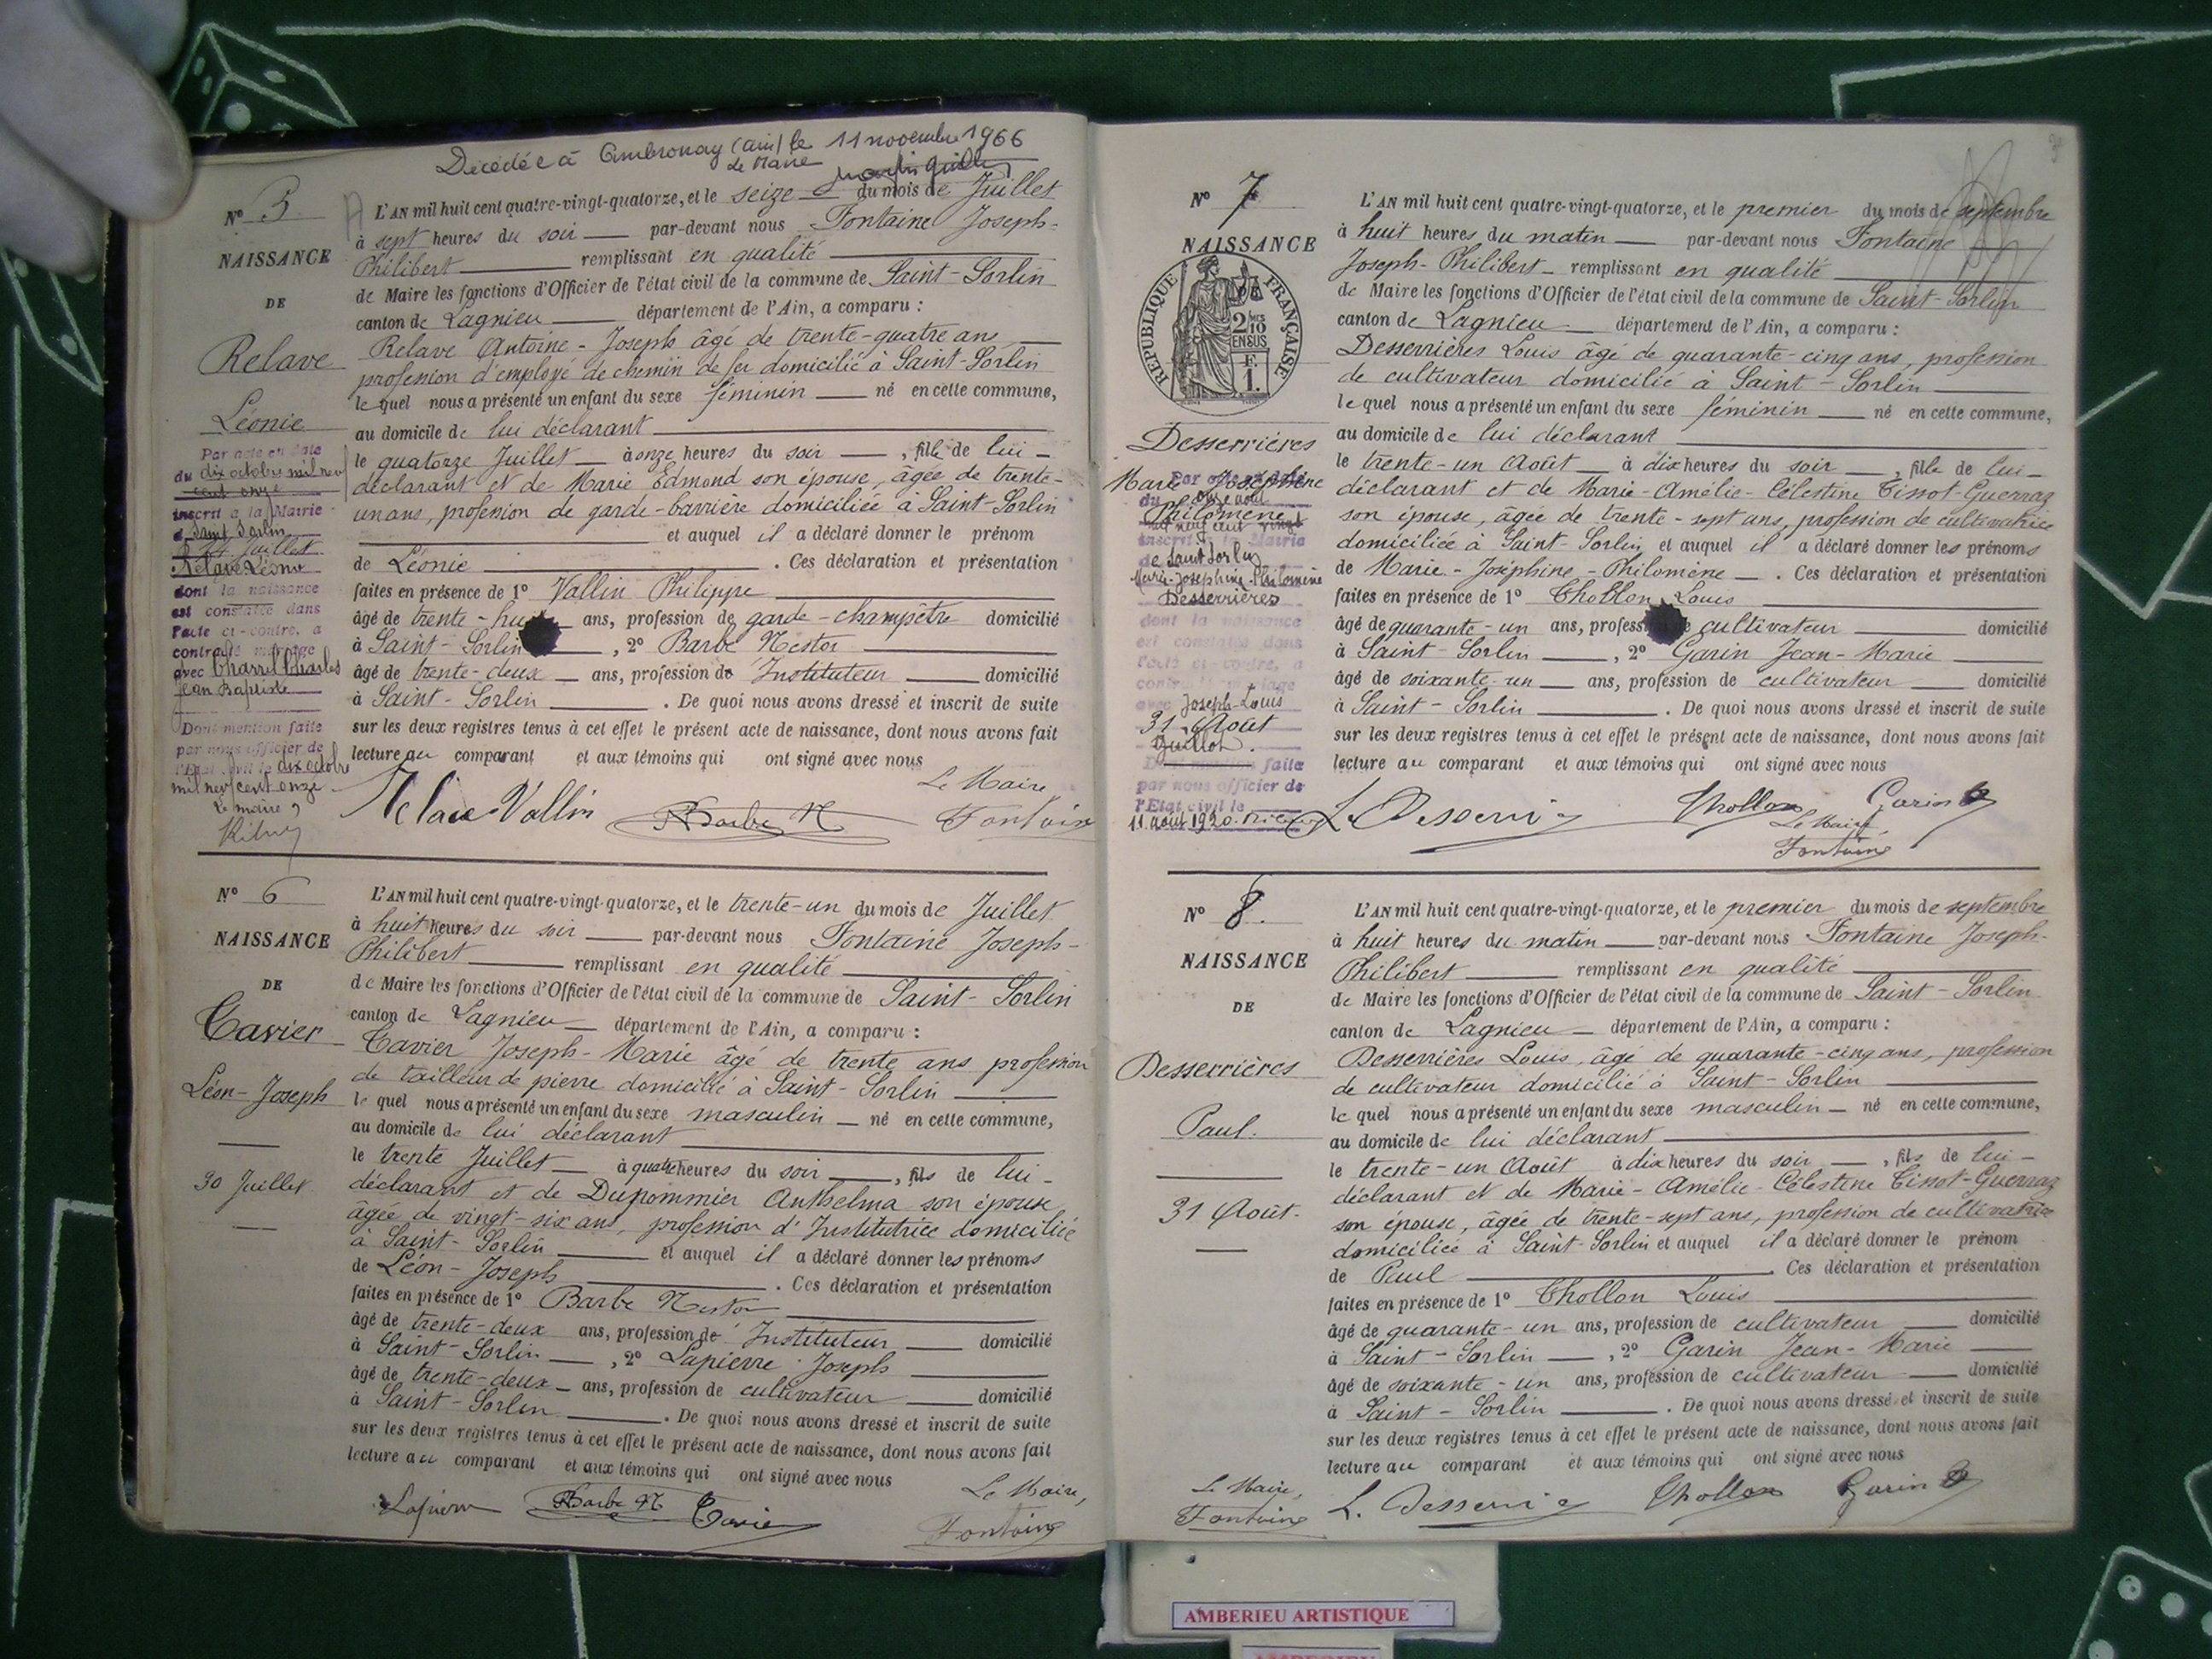 Décédée à Ambronay (ain) le 11 novembre 1966
Le Maire
Nº 5
NAISSANCE
DE
Relave
Léonie
Par acte en date
du dix octobre mil neuf
cent onze
inscrit à la Mairie
de Saint Sorlin
14 Juillet
Relave Léonie
dont la naissance
est constatée dans
l'acte ci-contre, a
contracté mariage
avec Charrel Charles
Jean Baptiste
Dont mention faite
par nous officier de
l'Etat civil le dix octobre
mil neuf cent onze
Le maire,
L'AN mil huit cent quatre-vingt-quatorze, et le seize du mois de Juillet
à sept heures du soir par-devant nous Fontaine Joseph-
Philibert remplissant en qualité
de Maire les fonctions d'Officier de l'état civil de la commune de Saint-Sorlin
canton de Lagnieu département de l'Ain, a comparu :
Relave Antoine-Joseph âgé de trente-quatre ans
profession d'employé de chemin de fer domicilié à Saint-Sorlin
lequel nous a présenté un enfant du sexe féminin né en cette commune,
au domicile de lui déclarant
le quatorze Juillet à onze heures du soir, fille de lui-
déclarant et de Marie Edmond son épouse, âgée de trente-
un ans, profession de garde-barrière domiciliée à Saint-Sorlin
et auquel il a déclaré donner le prénom
de Léonie. Ces déclaration et présentation
faites en présence de 1º Vallin Philippe
âgé de trente-hu ans, profession de garde-champêtre domicilié
à Saint-Sorlin, 2º Barbe Nestor
âgé de trente-deux ans, profession de Instituteur domicilié
à Saint-Sorlin. De quoi nous avons dressé et inscrit de suite
sur les deux registres tenus à cet effet le présent acte de naissance, dont nous avons fait
lecture au comparant et aux témoins qui ont signé avec nous
Le Maire
Relave Vallin Barbe N Fontaine
Nº 6
NAISSANCE
DE
Tavier
Léon-Joseph
30 Juillet
L'AN mil huit cent quatre-vingt-quatorze, et le trente-un du mois de Juillet
à huit heures du soir par-devant nous Fontaine Joseph-
Philibert remplissant en qualité
de Maire les fonctions d'Officier de l'état civil de la commune de Saint-Sorlin
canton de Lagnieu département de l'Ain, a comparu :
Tavier Joseph-Marie âgé de trente ans profession
de tailleur de pierre domicilié à Saint-Sorlin
le quel nous a présenté un enfant du sexe masculin né en cette commune,
au domicile de lui déclarant
le trente Juillet à quatre heures du soir, fils de lui-
déclarant et de Dupommier Anthelma son épouse
âgée de vingt-six ans, profession d'Institutrice domiciliée
à Saint-Sorlin et auquel il a déclaré donner les prénoms
de Léon-Joseph. Ces déclaration et présentation
faites en présence de 1º Barbe Nestor
âgé de trente-deux ans, profession de Instituteur domicilié
à Saint-Sorlin, 2º Lapierre Joseph
âgé de trente-deux ans, profession de cultivateur domicilié
à Saint-Sorlin. De quoi nous avons dressé et inscrit de suite
sur les deux registres tenus à cet effet le présent acte de naissance, dont nous avons fait
lecture au comparant et aux témoins qui ont signé avec nous
Le Maire,
Lapierre Barbe N. Tavier Fontaine
Nº 7
NAISSANCE
REPUBLIQUE FRANÇAISE
2/10 EN SUS
F. 1.
Desserrières
Marie-Joséphine
Philomène
31 Août
Par acte en date
du onze août
mil neuf cent vingt
inscrit à la Mairie
de Saint Sorlin
Marie-Josephine-Philomène
Desserrières
dont la naissance
est constatée dans
l'acte ci-contre, a
contracté mariage
avec Joseph-Louis
Guillot.
Dont mention faite
par nous officier de
l'Etat civil le
11 août 1920.
L'AN mil huit cent quatre-vingt-quatorze, et le premier du mois de septembre
à huit heures du matin par-devant nous Fontaine
Joseph-Philibert remplissant en qualité
de Maire les fonctions d'Officier de l'état civil de la commune de Saint-Sorlin
canton de Lagnieu département de l'Ain, a comparu :
Desserrières Louis âgé de quarante-cinq ans, profession
de cultivateur domicilié à Saint-Sorlin
le quel nous a présenté un enfant du sexe féminin né en cette commune,
au domicile de lui déclarant
le trente-un Août à dix heures du soir, fille de lui-
déclarant et de Marie-Amélie-Célestine Tissot-Guerraz
son épouse, âgée de trente-sept ans, profession de cultivatrice
domiciliée à Saint-Sorlin et auquel il a déclaré donner les prénoms
de Marie-Joséphine-Philomène. Ces déclaration et présentation
faites en présence de 1º Chollon Louis
âgé de quarante-un ans, profess e cultivateur domicilié
à Saint-Sorlin, 2º Garin Jean-Marie
âgé de soixante-un ans, profession de cultivateur domicilié
à Saint-Sorlin. De quoi nous avons dressé et inscrit de suite
sur les deux registres tenus à cet effet le présent acte de naissance, dont nous avons fait
lecture au comparant et aux témoins qui ont signé avec nous
L. Desserrières Chollon Garin
Le Maire,
Fontaine
Nº 8.
NAISSANCE
DE
Desserrières
Paul.
31 Août.
L'AN mil huit cent quatre-vingt-quatorze, et le premier du mois de septembre
à huit heures du matin par-devant nous Fontaine Joseph-
Philibert remplissant en qualité
de Maire les fonctions d'Officier de l'état civil de la commune de Saint-Sorlin
canton de Lagnieu département de l'Ain, a comparu :
Desserrières Louis, âgé de quarante-cinq ans, profession
de cultivateur domicilié à Saint-Sorlin
le quel nous a présenté un enfant du sexe masculin né en cette commune,
au domicile de lui déclarant
le trente-un Août à dix heures du soir, fils de lui-
déclarant et de Marie-Amélie-Célestine Tissot-Guerraz
son épouse, âgée de trente-sept ans, profession de cultivatrice
domiciliée à Saint-Sorlin et auquel il a déclaré donner le prénom
de Paul. Ces déclaration et présentation
faites en présence de 1º Chollon Louis
âgé de quarante-un ans, profession de cultivateur domicilié
à Saint-Sorlin, 2º Garin Jean-Marie
âgé de soixante-un ans, profession de cultivateur domicilié
à Saint-Sorlin. De quoi nous avons dressé et inscrit de suite
sur les deux registres tenus à cet effet le présent acte de naissance, dont nous avons fait
lecture au comparant et aux témoins qui ont signé avec nous
Le Maire,
Fontaine L. Desserrières Chollon Garin
AMBERIEU ARTISTIQUE